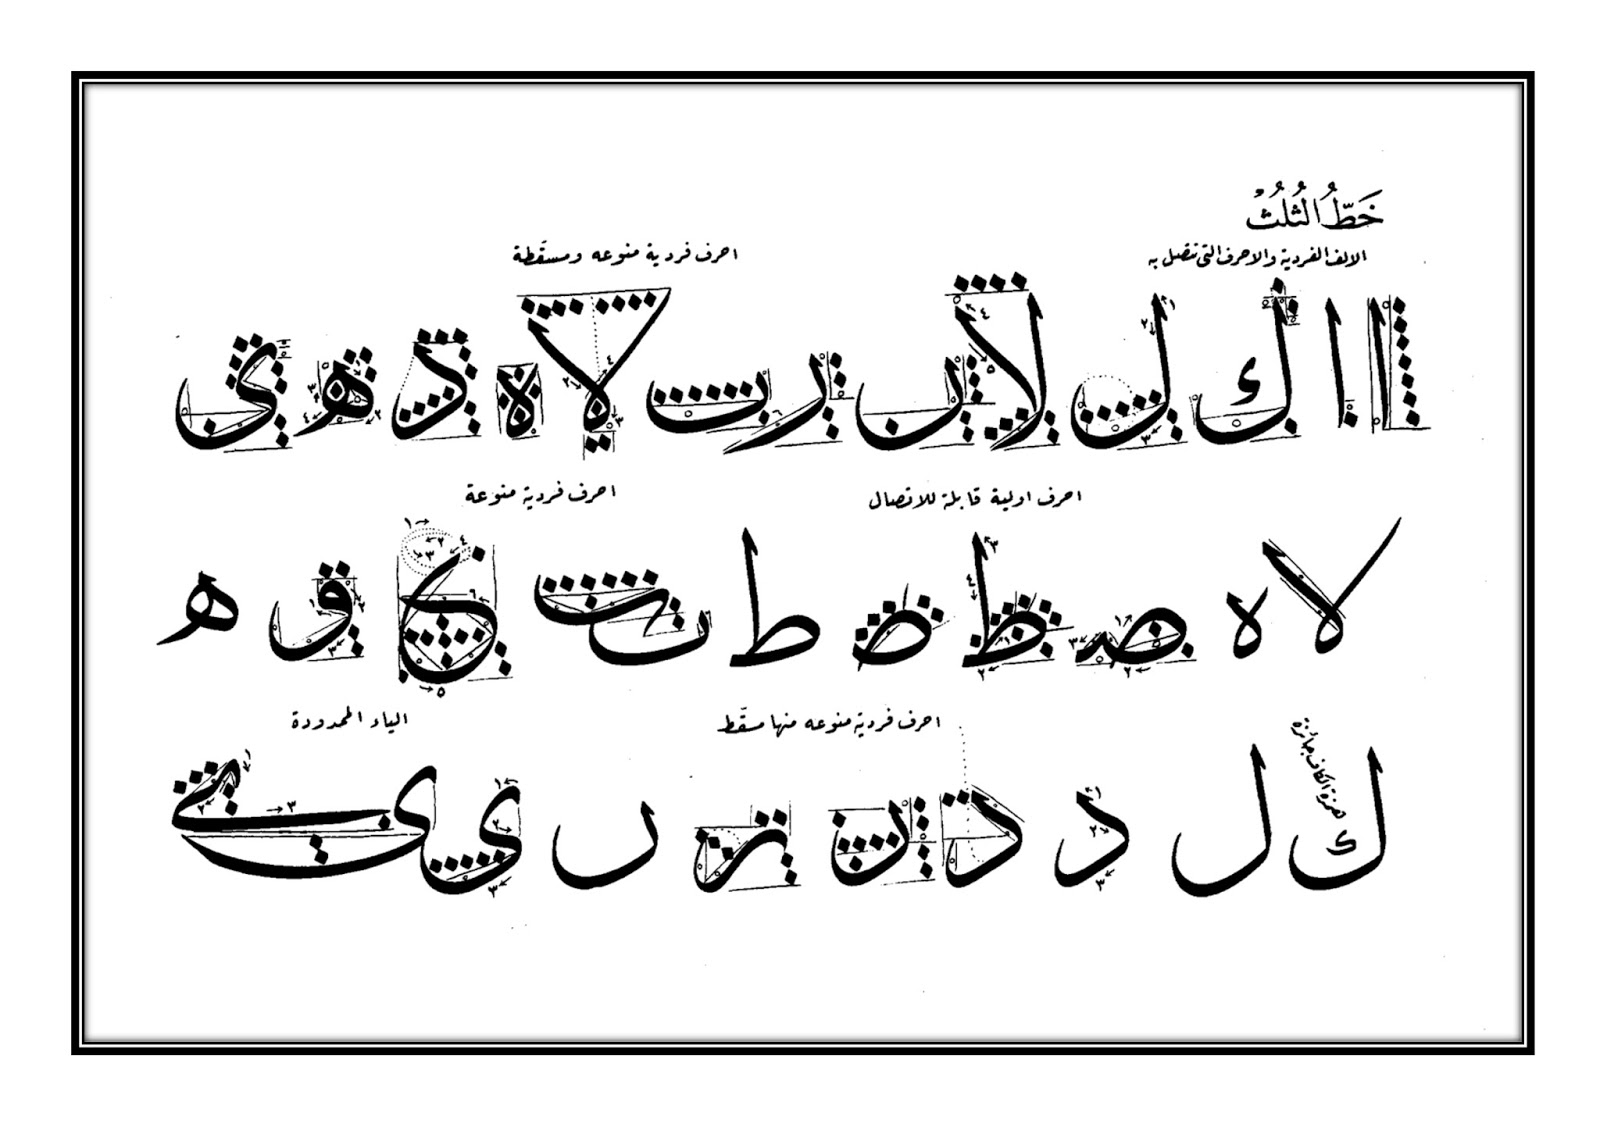 خَطُّ الثُلُثْ
الالف الفردية والاحرف التي تتصل به
احرف فردية منوعه ومسقّطة
ا ا ك ل لا ن ر ب لا ه د هـ ي
احرف اولية قابلة للاتصال
احرف فردية منوعة
لا ه صـ ظ ط ط ت ت ح و هـ
همزة الكاف جائزة
احرف فردية منوعه منها مسقّط
الياء الممدودة
ك ل د د ن ر ر ي ي